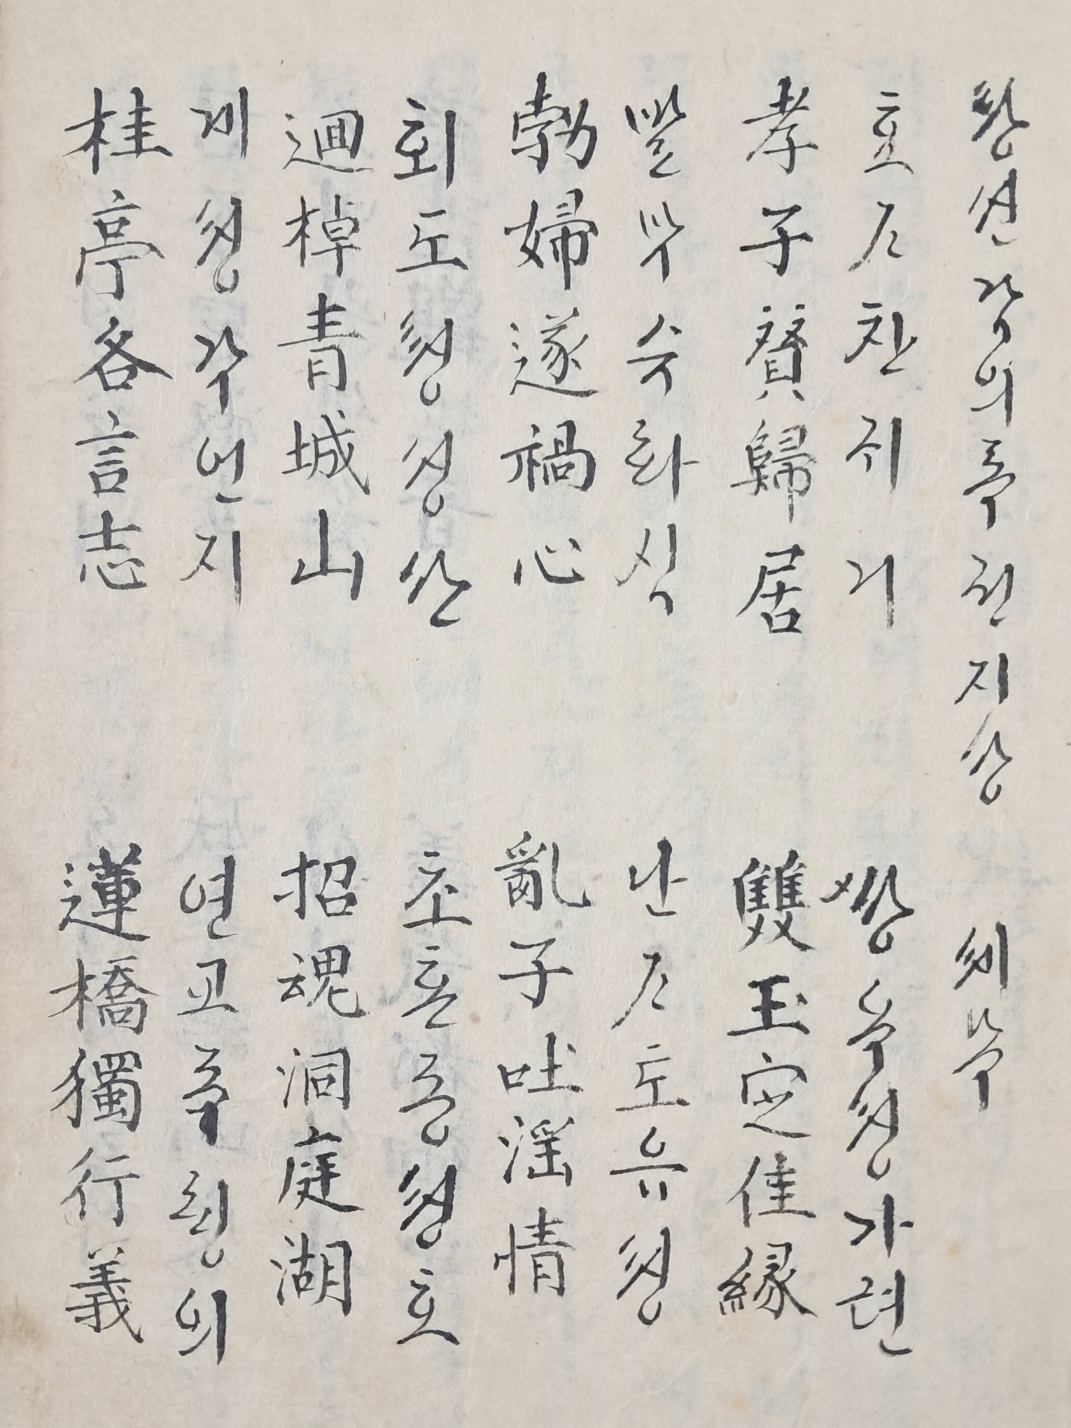 창션감의록권지상 셰목
효ᄌ찬귀거 쌍옥졍가련
孝子賛歸居 雙玉定佳緣
발부수화심 난ᄌ토음졍
勃婦遂禍心 亂子吐淫情
회도쳥셩산 초혼동졍호
廻棹青城山 招魂洞庭湖
계졍각언지 연교독힝의
桂亭各言志 蓮橋獨行義